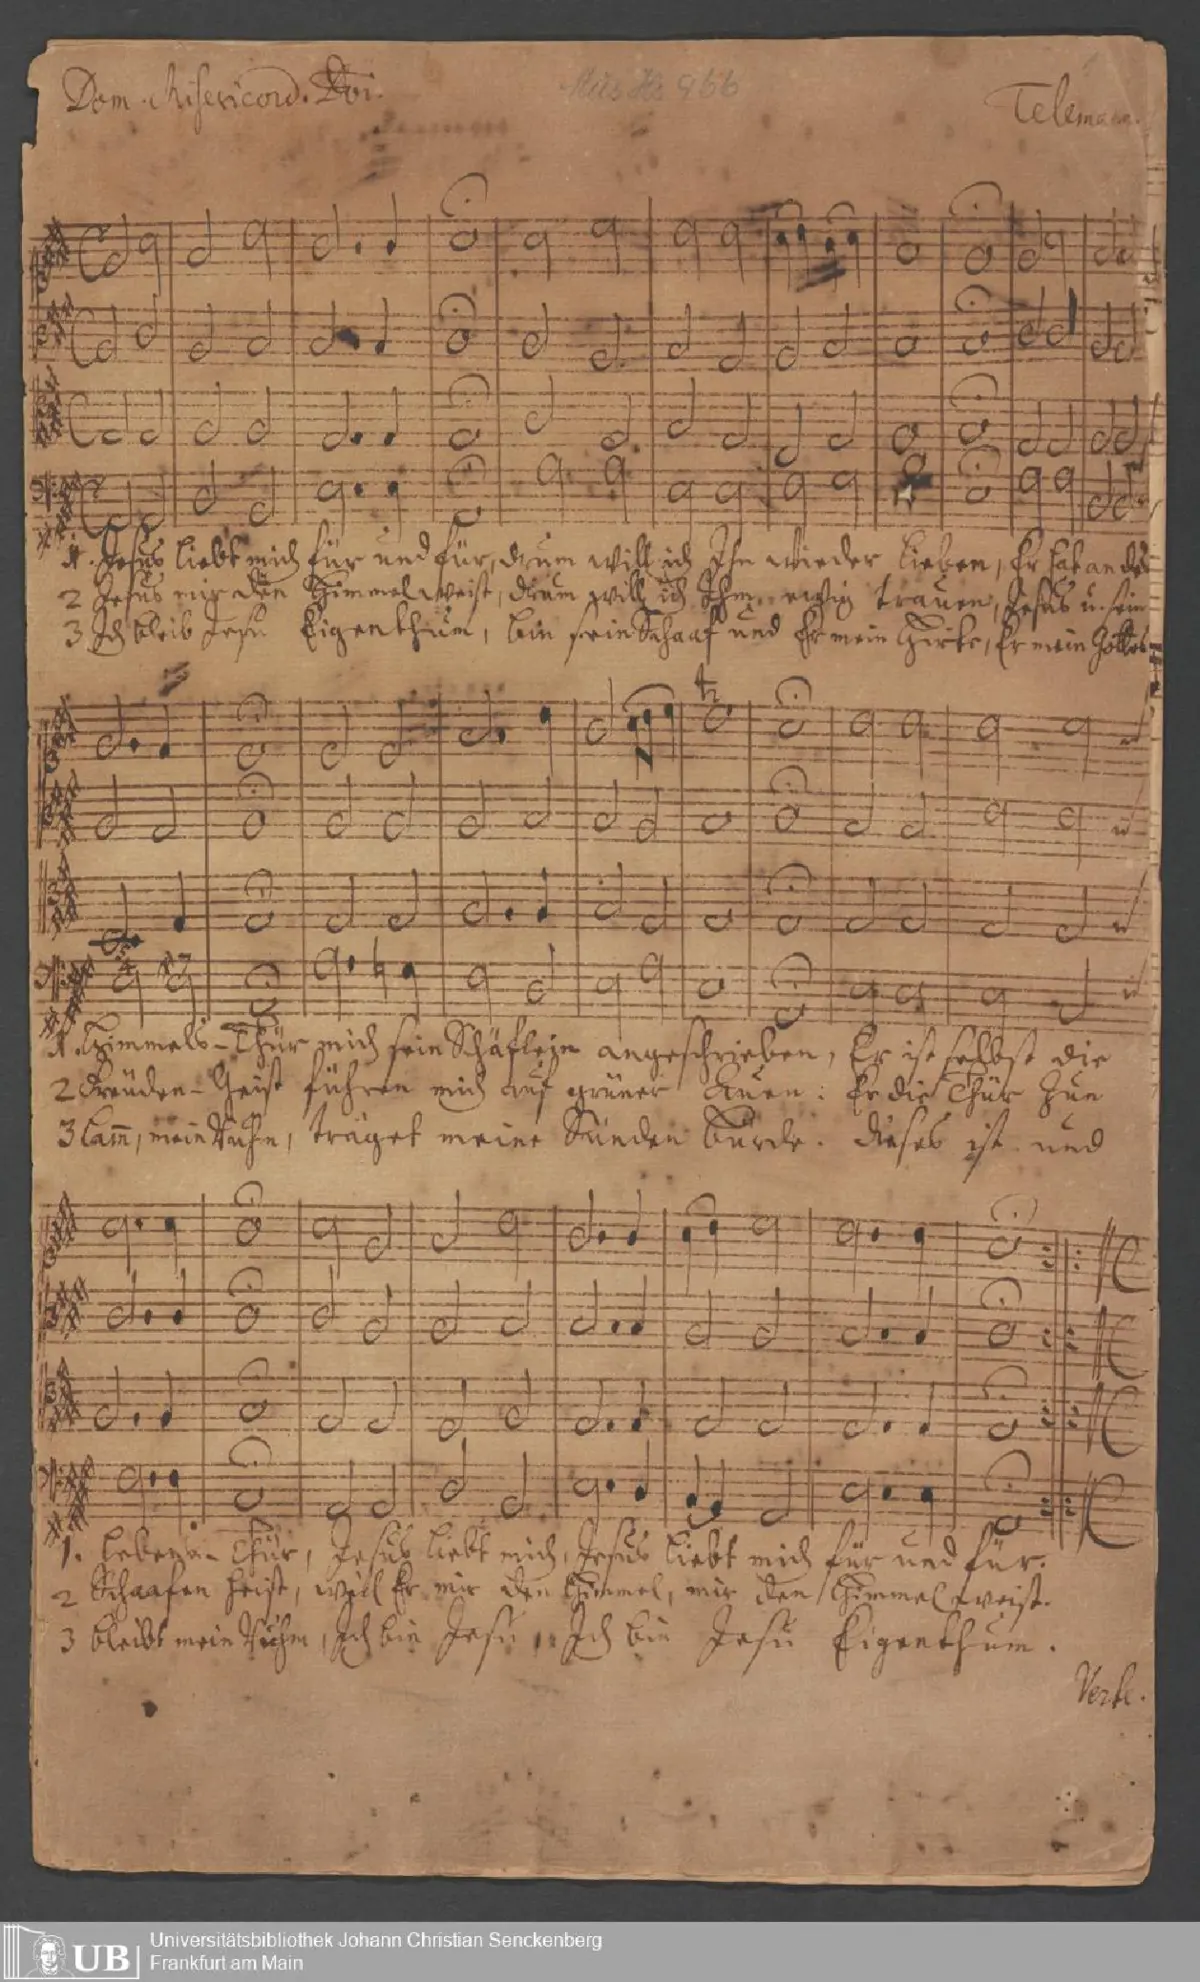 Dom. Misericord. Dni.
Mus Hs 966
Telemann.
1. Jesus liebt mich für und für, drum will ich Ihn wieder lieben, Er hat an der
2 Jesus mir den Himmel weist, drum will ich Ihm ewig trauen, Jesus u. sein
3 Ich bleib Jesu Eigenthum, bin sein Schaaf und Er mein Hirte, Er mein Gottes
1. Himmels-Thür mich sein Schäflein angeschrieben, Er ist selbst die
2 Freuden-Geist führen mich auf grüner Auen: Er die Thür zun
3 Lam̅, mein Ruhm, träget meine Sünden Bürde. Dieses ist und
1. Lebens-Thür, Jesus liebt mich, Jesus liebt mich für und für.
2 Schaafen heist, weil Er mir den Himmel, mir den Himmel weist.
3 bleibt mein Ruhm, Ich bin Jesu, Ich bin Jesu Eigenthum.
Verte.
UB
Universitätsbibliothek Johann Christian Senckenberg
Frankfurt am Main